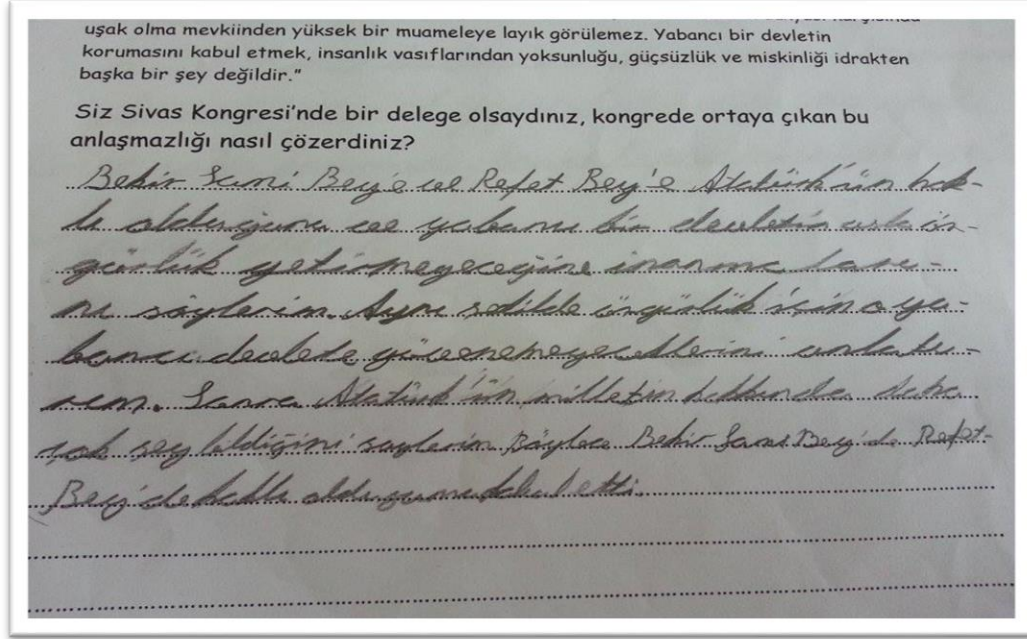 uşak olma mevkiinden yüksek bir muameleye layık görülemez. Yabancı bir devletin
korumasını kabul etmek, insanlık vasıflarından yoksunluğu, güçsüzlük ve miskinliği idrakten
başka bir şey değildir."
Siz Sivas Kongresi'nde bir delege olsaydınız, kongrede ortaya çıkan bu
anlaşmazlığı nasıl çözerdiniz?
Bekir Sami Bey'e ve Refet Bey'e Atatürk'ün hak-
lı olduğunu ve yabancı bir devletin asla öz-
gürlük getirmeyeceğine inanma
nı söylerim. Aynı şedilde özgürlük için o ya-
bancı devlete güvenemeyeceklerini anlatı-
rım. Sonra Atatürk'ün milletin hakkında daha
çok şey bildiğini söylerim. Böylece Bekir Sami Bey'de Refet-
Bey'de haklı olduğumu kabul etti.